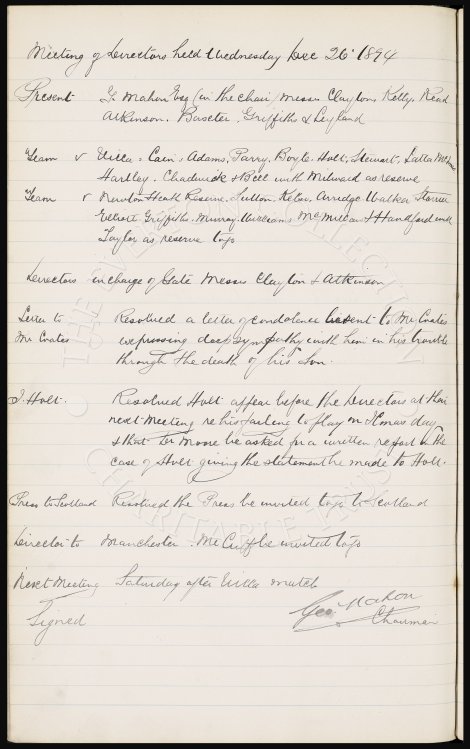 Meeting of Directors held Wednesday Dec 26' 1894
Present G. Mahon Esq (in the chair) Messrs Clayton, Kelly, Read
Atkinson. Baxter, Griffiths & Leyland
Team v Villa. Cain, Adams, Parry, Boyle. Holt, Stewart, Latta
Hartley. Chadwick & Bell with Milward as reserve
Team v Newton Heath Reserve. Sutton. Kelso, Arridge. Walker Storrier
Elliott Griffiths. Murray. Williams McMillan & Handford with
Taylor as reserve to go
Directors in charge of Gate Messrs Clayton & Atkinson
Letter to Resolved a letter of condolence be sent to Mr Coates
Mr Coates expressing deep sympathy with him in his trouble
through the death of his Son.
J. Holt. Resolved Holt appear before the Directors at their
next meeting re his failing to play on Xmas day
& that Dr Moore be asked for a written report in the
case of Holt giving the statement he made to Holt.
Press to Scotland Resolved the Press be invited to go to Scotland
Director to Manchester. Mr Cuff be invited to go
Next Meeting Saturday after Villa match
Signed Geo Mahon
Chairman
THE
COLLECTION
CHARITABLE